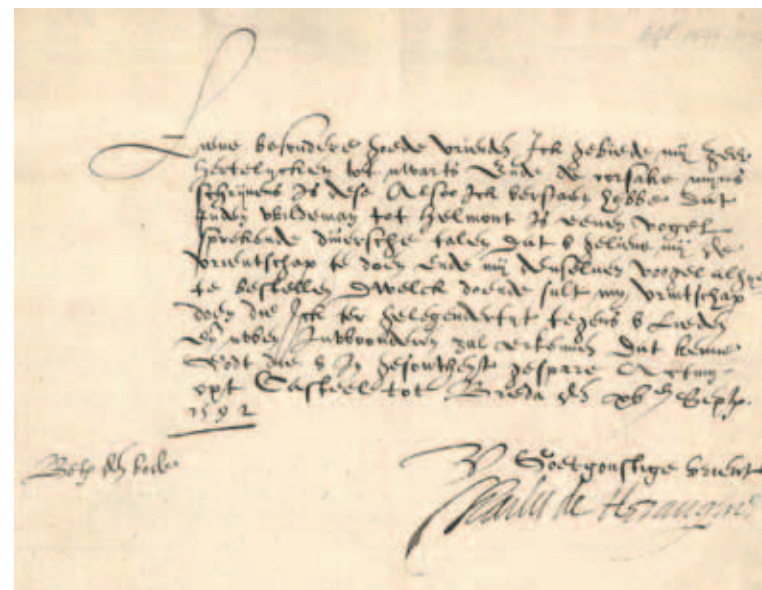 Lieve besondere goede vrienden Ick gebiede mij zeer
hertelycken tot uwarts Ende de oorsake mijns
schrijvens is dese Alsoo Ick verstaen hebbe dat
Inden Wildeman tot Helmont is eenen vogel
sprekende diversche talen dat u gelieve mij de
vrientschap te doen ende mij denselven voogel alhier
te bestellen Dwelck doende sult my vrintschap
doen die Ick ter gelegendertyt tegens u Lieden
en uwen Inwoonderen zal verkennen Dat kenne
Godt die u In gesontheyt gespare Actum
opt Casteel tot Breda den xv en Septr.
1592
den bode
U Goetgonstige vrient
Charles de Heraugiere